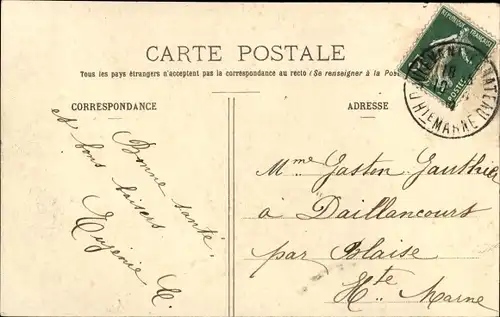 CARTE POSTALE
Tous les pays étrangers n'acceptent pas la correspondance au recto (Se renseigner à la Pos
CORRESPONDANCE
ADRESSE
RÉPUBLIQUE FRANÇAISE
HTE MARNE
Bonne santé,
et bons baisers
Eugénie R.
Mme Gaston Gauthier
à Daillancourt
par Blaise
Hte Marne